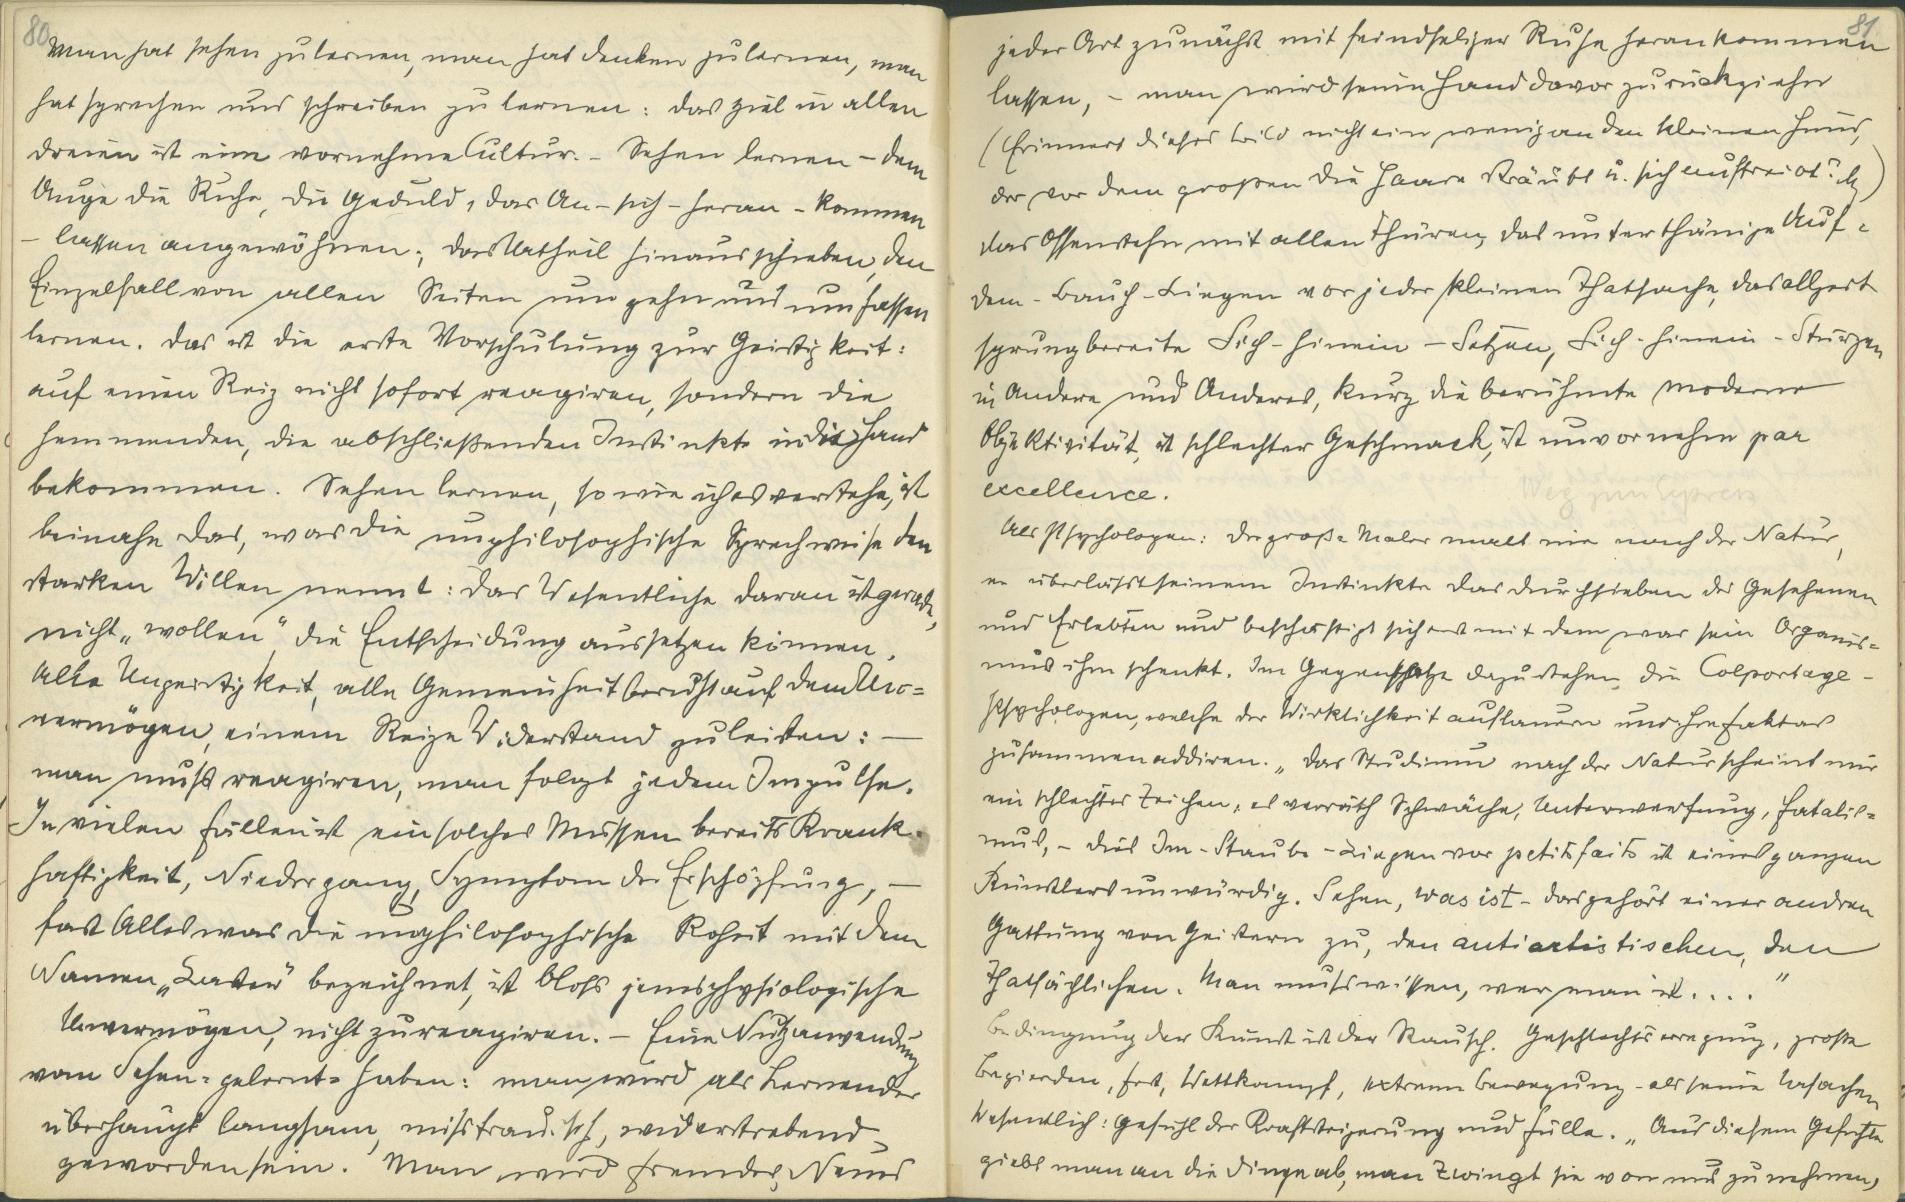 80
Man hat sehen zu lernen, man hat denken zu lernen, man
hat sprechen und schreiben zu lernen: das Ziel in allen
dreien ist eine vornehme Cultur. – Sehen lernen – dem
Auge die Ruhe, die Geduld, das An-sich-heran-kommen
-lassen angewöhnen; das Urtheil hinausschieben, den
Einzelfall von allen Seiten umgehn und umfassen
lernen. Das ist die erste Vorschulung zur Geistigkeit:
auf einen Reiz nicht sofort reagiren, sondern die
hemmenden, die abschließenden Instinkte in die Hand
bekommen. Sehen lernen, so wie ich es verstehe, ist
beinahe das, was die unphilosophische Sprechweise den
starken Willen nennt: das Wesentliche daran ist gerade,
nicht „wollen“, die Entscheidung aussetzen können.
Alle Ungeistigkeit, alle Gemeinheit beruht auf dem Un=
vermögen, einem Reize Widerstand zu leisten: –
man muß reagiren, man folgt jedem Impulse.
In vielen Fällen ist ein solches Müssen bereits Krank-
haftigkeit, Niedergang, Symptom der Erschöpfung, –
fast Alles was die unphilosophische Roheit mit dem
Namen „Laster“ bezeichnet, ist bloß jenes physiologische
Unvermögen, nicht zu reagiren. – Eine Nutzanwendung
vom Sehen=gelernt=haben: man wird als Lernender
überhaupt langsam, mißtrauisch, widerstrebend
geworden sein. Man wird Fremdes, Neues
81
jeder Art zunächst mit feindseliger Ruhe herankommen
lassen, – man wird seine Hand davor zurückziehn
(Erinnert dieses Bild nicht ein wenig an den kleinen Hund,
der vor dem großen die Haare sträubt u. sich
das Offenstehn mit allen Thüren, das unterthänige Auf-
dem-Bauch-Liegen vor jeder kleinen Thatsache, das allzeit
sprungbereite Sich-hinein-Setzen, Sich-hinein-Stürzen
in Andere und Anderes, kurz die berühmte moderne
Objektivität, ist schlechter Geschmack, ist unvornehm par
excellence.
Als Psychologen: der große Maler malt nie nach der Natur,
er überläßt seinem Instinkte das Durchsieben des Gesehenen
und Erlebten und beschäftigt sich erst mit dem was sein Organis=
mus ihm schenkt. Im Gegensatze dazu stehen die Colportage-
Psychologen, welche der Wirklichkeit auflauern und ihre Faktas
zusammenaddiren. „Das Studium nach der Natur scheint mir
ein schlechtes Zeichen: es verräth Schwäche, Unterwerfung, Fatalis=
mus, – dies Im-Staube-Liegen vor petits faits ist eines ganzen
Künstlers unwürdig. Sehen, was ist – das gehört einer andren
Gattung von Geistern zu, den antiartistischen, den
Thatsächlichen. Man muß wissen, wer man ist....“
Bedingung der Kunst ist der Rausch. Geschlechtserregung, große
Begierden, Fest, Wettkampf, extreme Bewegung – als seine Ursachen
Wesentlich: Gefühl der Kraftsteigerung und Fülle. „Aus diesem Gefühle
giebt man an die Dinge ab, man zwingt sie von uns zu nehmen,